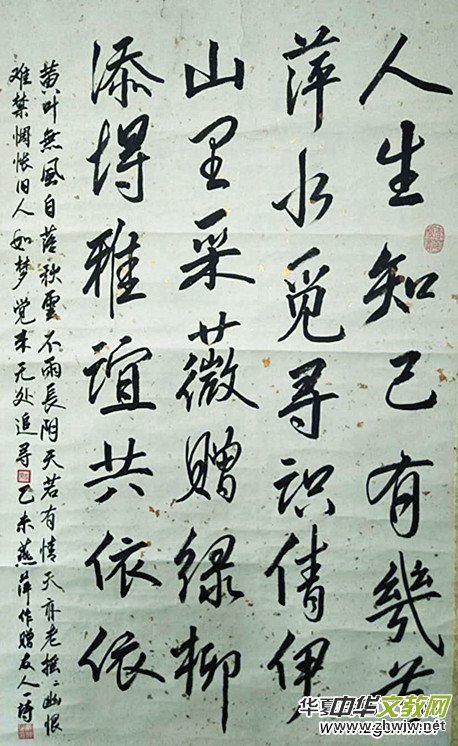 人生知己有幾
萍水觅寻识倩伊
山里采薇赠绿柳
添得雅谊共依依
黄叶無風自落秋雲不雨長阴天若有情天亦老摇〻幽恨
难禁惆怅旧人如梦觉来无处追寻 乙未燕萍作赠友人一诗
华夏
中华文教网
www.zhwjw.net